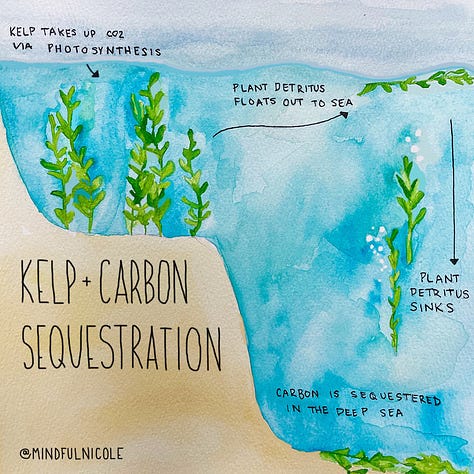 KELP TAKES UP CO2
VIA PHOTOSYNTHESIS
PLANT DETRITUS
FLOATS OUT TO SEA
PLANT
DETRITUS
SINKS
KELP + CARBON
SEQUESTRATION
CARBON IS SEQUESTERED
IN THE DEEP SEA
@MINDFULNICOLE